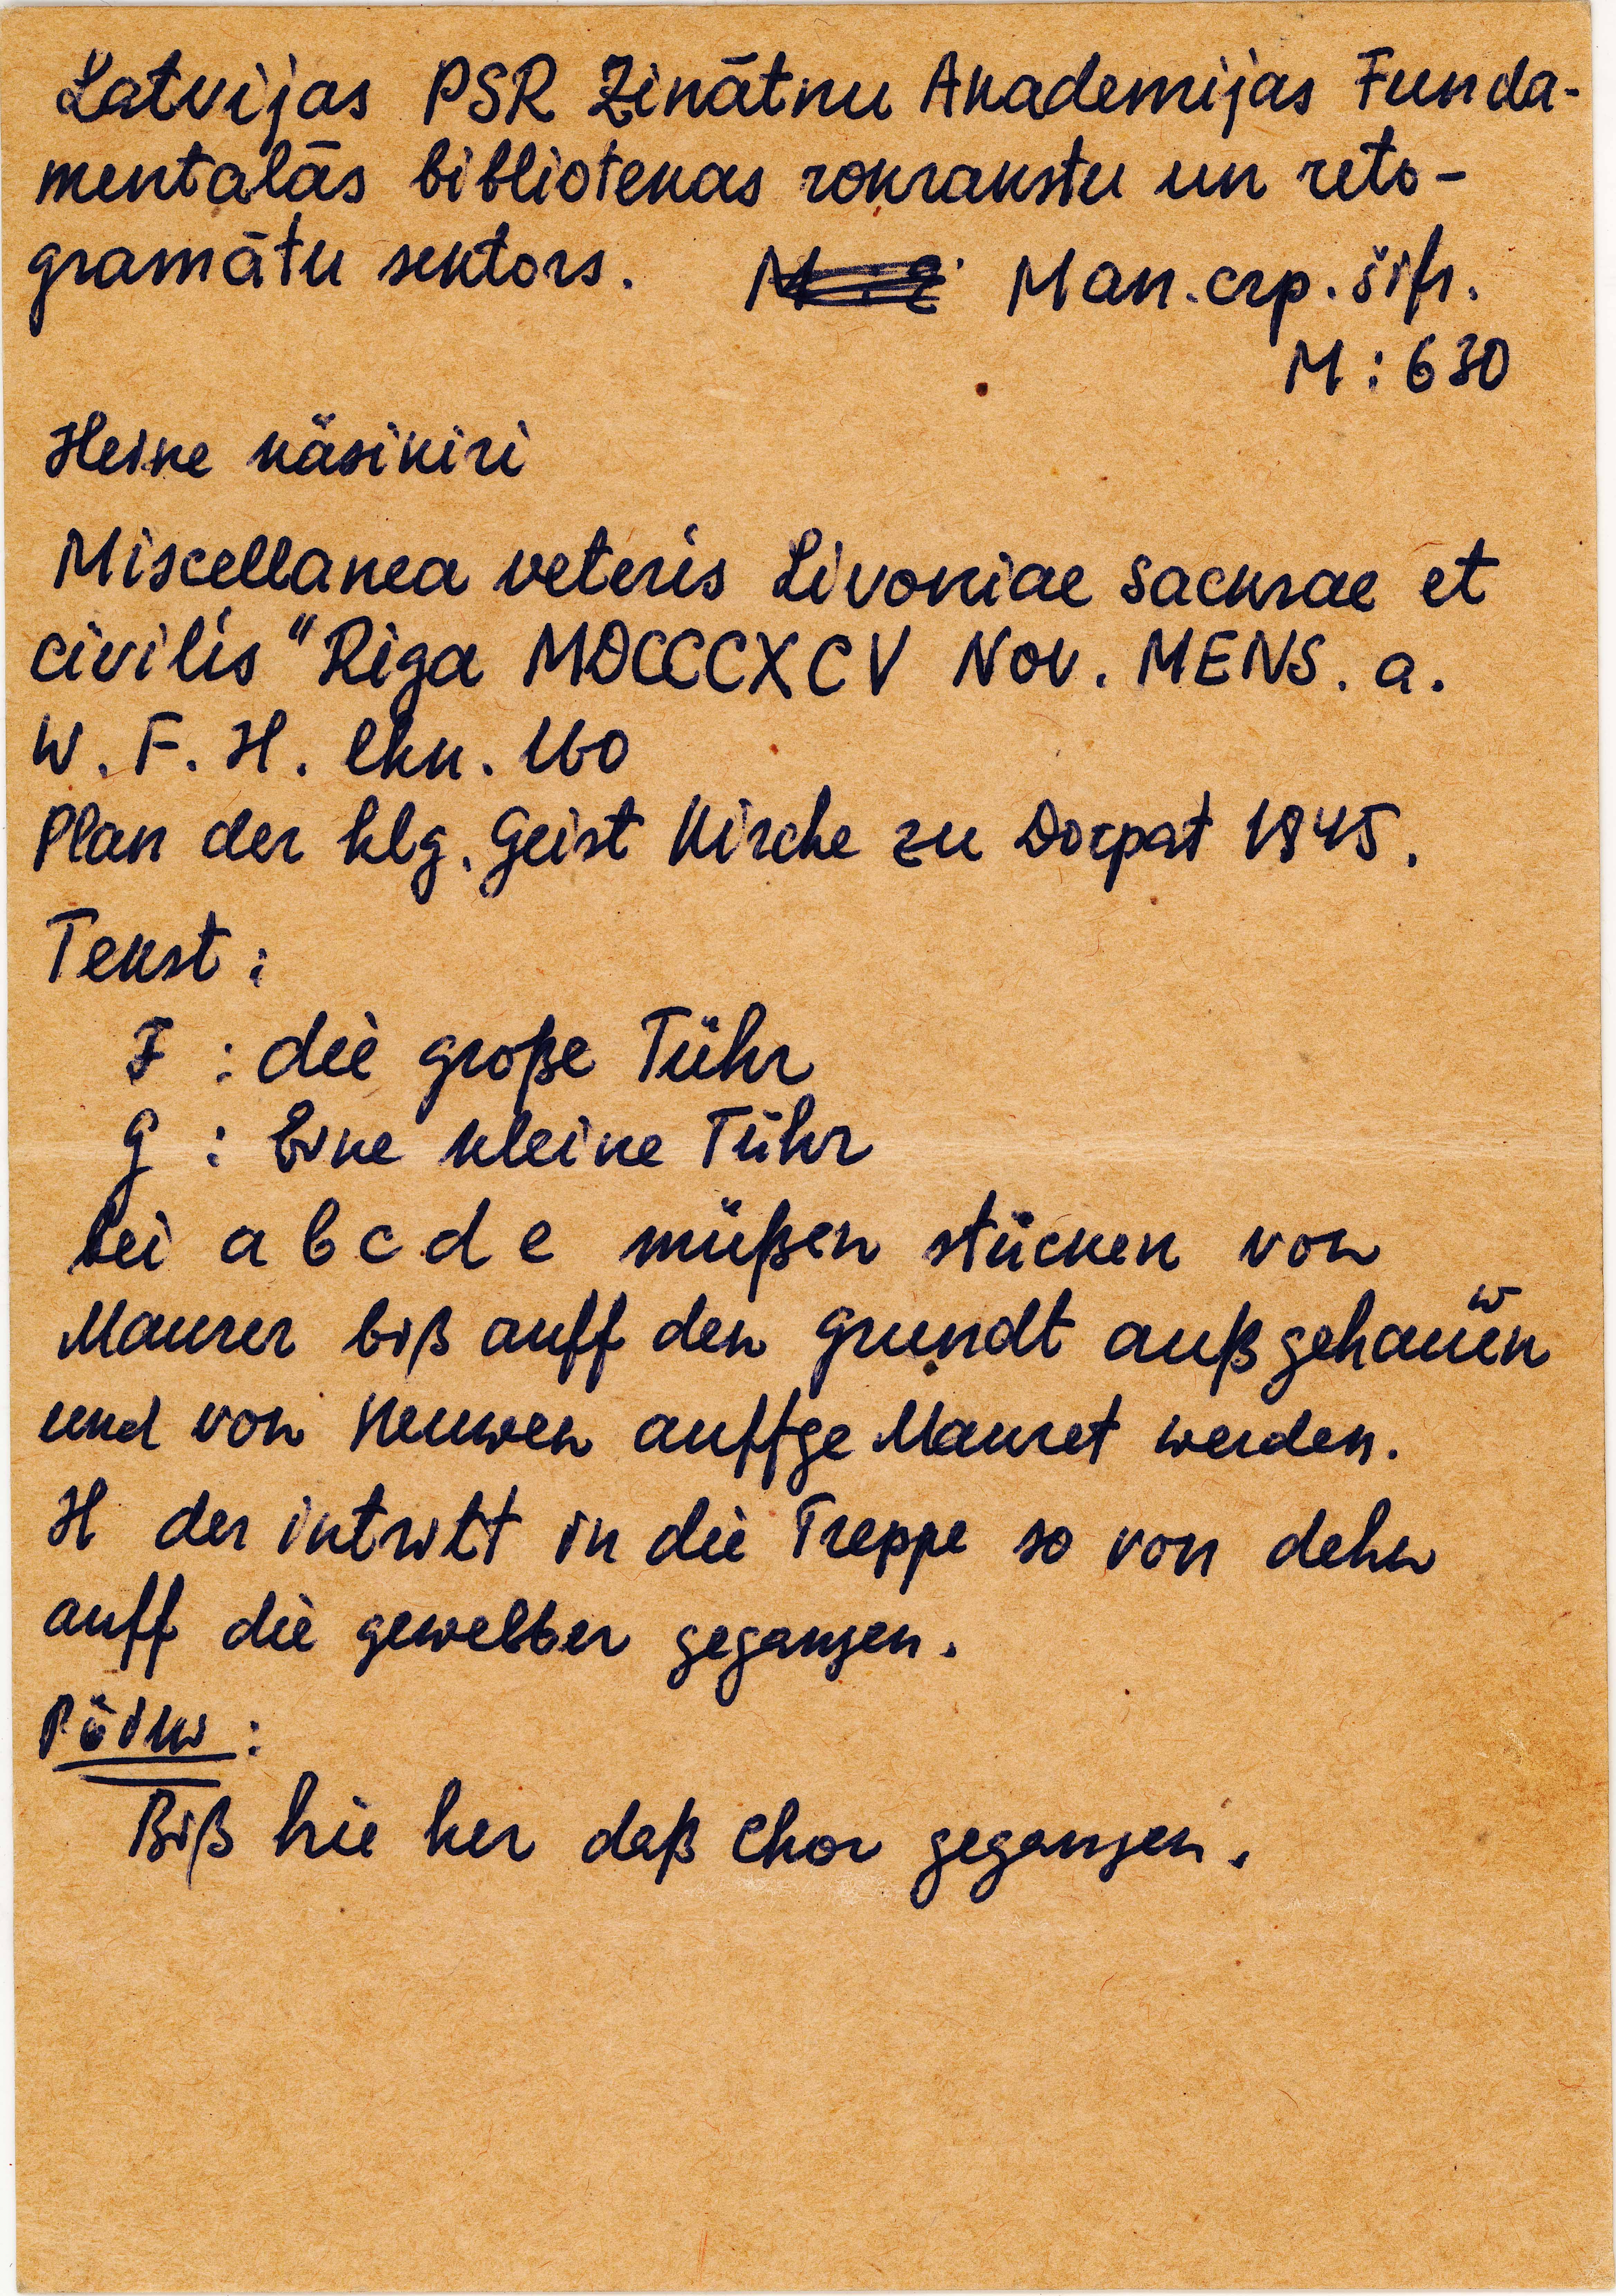 Latvijas PSR Zinātnu Akademijas Funda-
mentalās bibliotekas rokrakstu un reto-
gramātu sektors. Man.crp. šifr.
M: 630
Heine käsikiri
Miscellanea veteris Livoniae sackrae et
civilis" Riga MDCCCXCV Nov. MENS. a.
W. F. H. lhk. 160
Plan der hlg. Geist Kirche zu Dorpat 1945.
Tekst:
F : die große Tühr
G : Eine kleine Tühr
bei a b c d e müßen stücken von
Maurer biß auff den grundt außgehauwen
und von neuwen auffge Mauret werden.
H der intritt in die Treppe so von dehn
auff die gewelber gegangen.
Põik:
Biß hie her daß Chor gegangen.